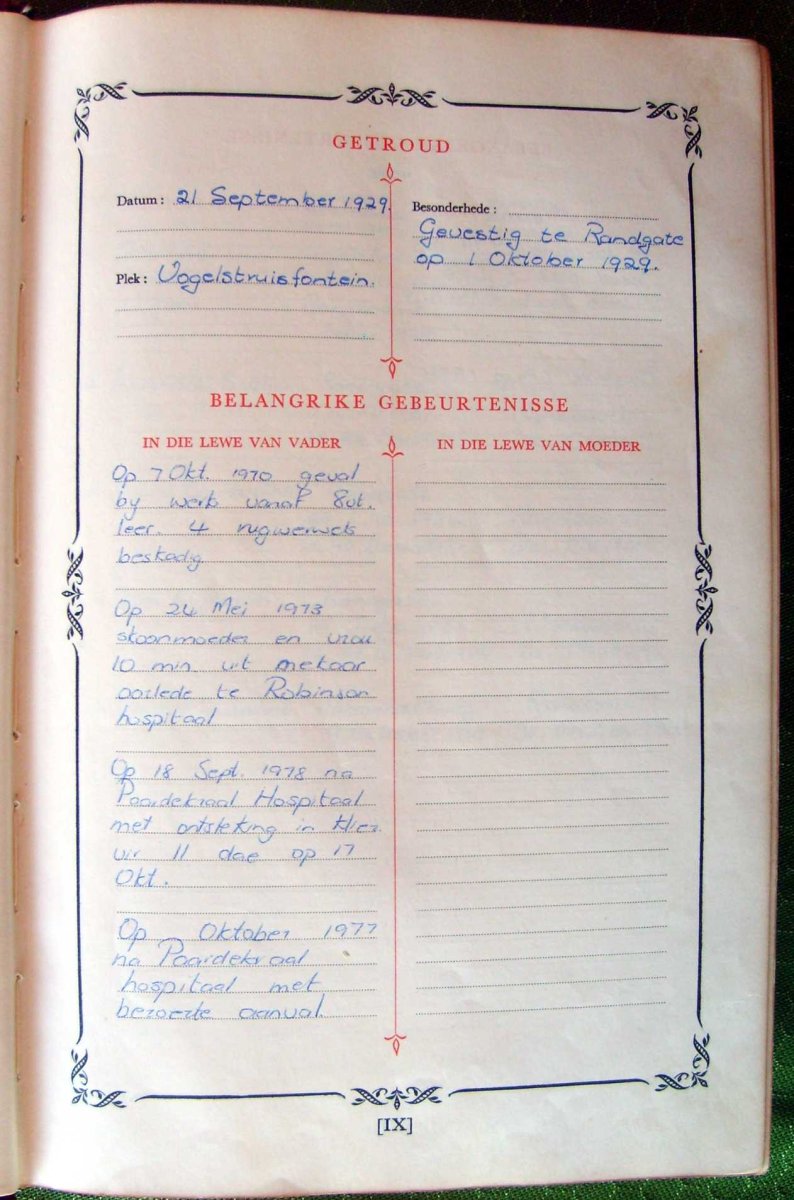 GETROUD
Datum: 21 September 1929.
Plek: Vogelstruisfontein.
Besonderhede:
Gevestig te Randgate
op 1 Oktober 1929.
BELANGRIKE GEBEURTENISSE
IN DIE LEWE VAN VADER
Op 7 Okt. 1970 geval
by werk vanaf 8vt.
leer. 4 rugwerwels
beskadig
Op 24 Mei 1973
skoonmoeder en vrou
10 min uit mekaar
oorlede te Robinson
hospitaal
Op 18 Sept. 1978 na
Paardekraal Hospitaal
met ontsteking in klier
vir 11 dae op 17
Okt.
Op Oktober 1977
na Paardekraal
hospitaal met
beroerte aanval.
IN DIE LEWE VAN MOEDER
[IX]